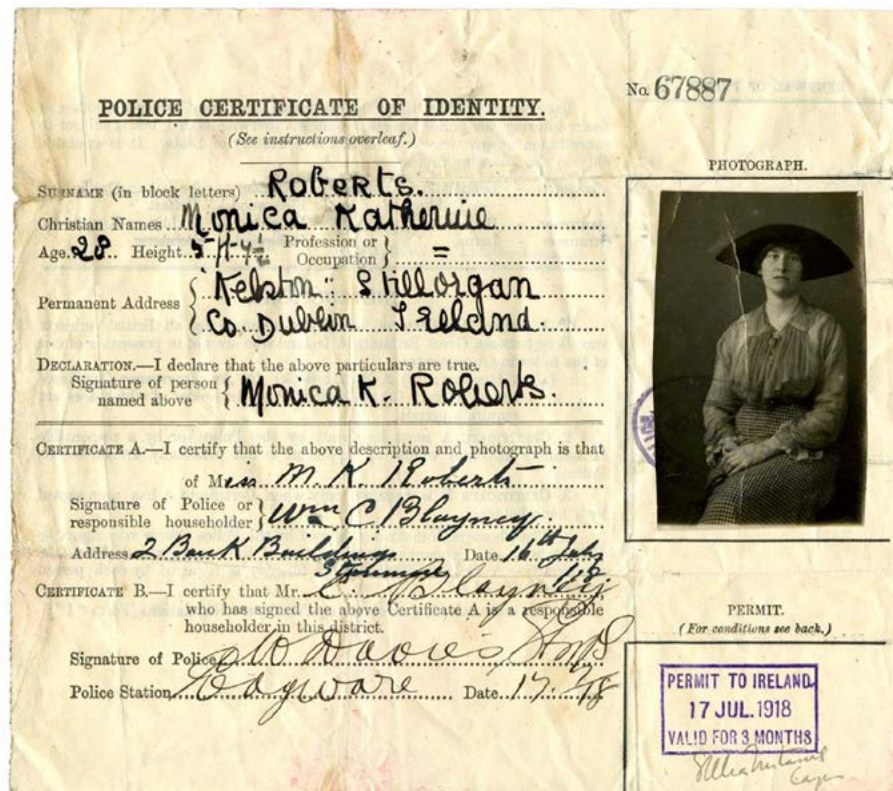 No. 67887
POLICE CERTIFICATE OF IDENTITY.
(See instructions overleaf.)
PHOTOGRAPH.
SURNAME (in block letters) Roberts.
Christian Names Monica Katherine
Age 28 Height 5-H-4½ Profession or Occupation } =
Permanent Address { Kelston: Stillorgan
Co. Dublin Ireland.
DECLARATION.—I declare that the above particulars are true.
Signature of person named above { Monica K. Roberts.
CERTIFICATE A.—I certify that the above description and photograph is that
of Miss M. K. Roberts
Signature of Police or responsible householder } Wm C Blayney.
Address 2 Bank Buildings Date 16th July
Stanmore 1918
CERTIFICATE B.—I certify that Mr. C. Blayney
who has signed the above Certificate A is a responsible
householder in this district.
Signature of Police W Davies
Police Station Edgware Date 17.7/18
PERMIT.
(For conditions see back.)
PERMIT TO IRELAND.
17 JUL. 1918
VALID FOR 3 MONTHS